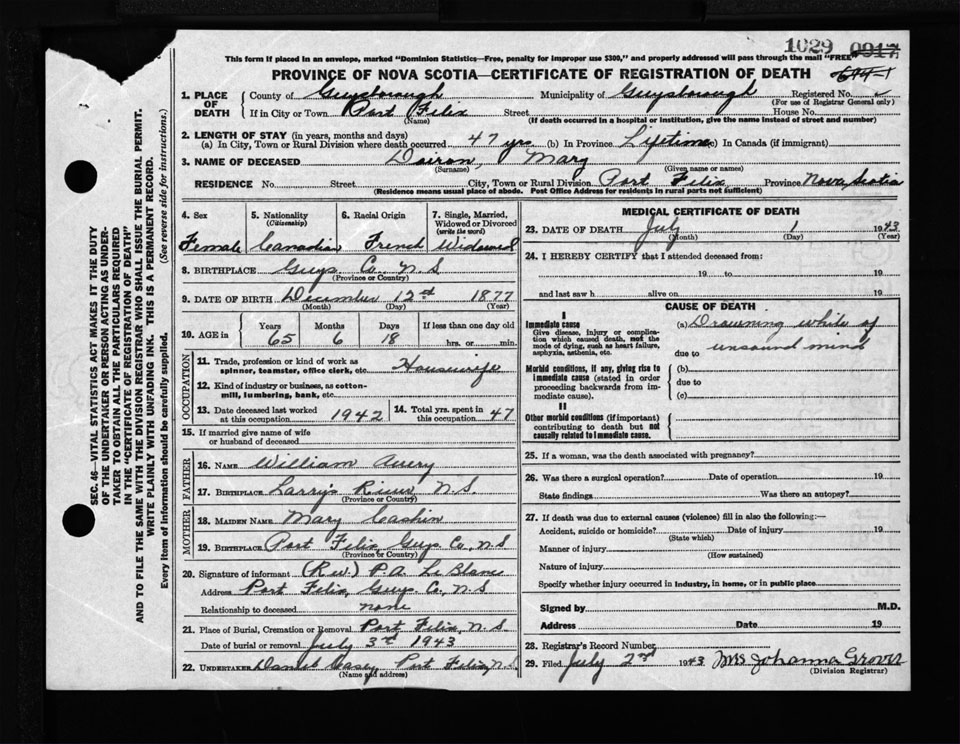 1029 0917
This form if placed in an envelope, marked "Dominion Statistics—Free, penalty for improper use $300," and properly addressed will pass through the mail "FREE"
PROVINCE OF NOVA SCOTIA—CERTIFICATE OF REGISTRATION OF DEATH 694-1
1. PLACE OF DEATH
County of Guysborough Municipality of Guysborough Registered No.
(For use of Registrar General only)
If in City or Town Port Felix Street House No.
(Name) (If death occurred in a hospital or institution, give the name instead of street and number)
2. LENGTH OF STAY (in years, months and days)
(a) In City, Town or Rural Division where death occurred 47 yrs (b) In Province Lifetime (c) In Canada (if immigrant)
3. NAME OF DECEASED Doiron, Mary
(Surname) (Given name or names)
RESIDENCE No. Street City, Town or Rural Division Port Felix Province Nova Scotia
(Residence means usual place of abode. Post Office Address for residents in rural parts not sufficient)
4. Sex
Female
5. Nationality
(Citizenship)
Canadian
6. Racial Origin
French
7. Single, Married, Widowed or Divorced
(write the word)
Widowed
8. BIRTHPLACE Guys. Co. N.S
(Province or Country)
9. DATE OF BIRTH December 12th 1877
(Month) (Day) (Year)
10. AGE in
Years Months Days If less than one day old
65 6 18 hrs. or min.
OCCUPATION
11. Trade, profession or kind of work as
spinner, teamster, office clerk, etc. Housewife
12. Kind of industry or business, as cotton-
mill, lumbering, bank, etc.
13. Date deceased last worked at this occupation 1942
14. Total yrs. spent in this occupation 47
15. If married give name of wife
or husband of deceased
FATHER
16. NAME William Avery
17. BIRTHPLACE Larry's River N.S.
(Province or Country)
MOTHER
18. MAIDEN NAME Mary Cashin
19. BIRTHPLACE Port Felix, Guys. Co., N.S
(Province or Country)
20. Signature of informant (Rev) P.A. LeBlanc
Address Port Felix, Guys. Co., N.S
Relationship to deceased none
21. Place of Burial, Cremation or Removal Port Felix, N.S
Date of burial or removal July 3rd 1943
22. UNDERTAKER Daniel Casey, Port Felix, N.S.
(Name and address)
MEDICAL CERTIFICATE OF DEATH
23. DATE OF DEATH July 1 1943
(Month) (Day) (Year)
24. I HEREBY CERTIFY that I attended deceased from:
19 to 19
and last saw h alive on 19
CAUSE OF DEATH
I
Immediate cause
Give disease, injury or complication which caused death, not the mode of dying, such as heart failure, asphyxia, asthenia, etc.
(a) Drowning while of
due to unsound mind
Morbid conditions, if any, giving rise to immediate cause (stated in order proceeding backwards from immediate cause).
(b)
due to
(c)
II
Other morbid conditions (if important) contributing to death but not causally related to immediate cause.
25. If a woman, was the death associated with pregnancy?
26. Was there a surgical operation? Date of operation 19
State findings Was there an autopsy?
27. If death was due to external causes (violence) fill in also the following:—
Accident, suicide or homicide? Date of injury 19
(State which)
Manner of injury
(How sustained)
Nature of injury
Specify whether injury occurred in industry, in home, or in public place
Signed by M.D.
Address Date 19
28. Registrar's Record Number
29. Filed July 2nd 1943 Mrs Johanna Grover
(Division Registrar)
SEC. 46—VITAL STATISTICS ACT MAKES IT THE DUTY
OF THE UNDERTAKER OR PERSON ACTING AS UNDER-
TAKER TO OBTAIN ALL THE PARTICULARS REQUIRED
IN THE "CERTIFICATE OF REGISTRATION OF DEATH"
AND TO FILE THE SAME WITH THE DIVISION REGISTRAR WHO SHALL ISSUE THE BURIAL PERMIT.
WRITE PLAINLY WITH UNFADING INK. THIS IS A PERMANENT RECORD.
Every item of information should be carefully supplied. (See reverse side for instructions.)